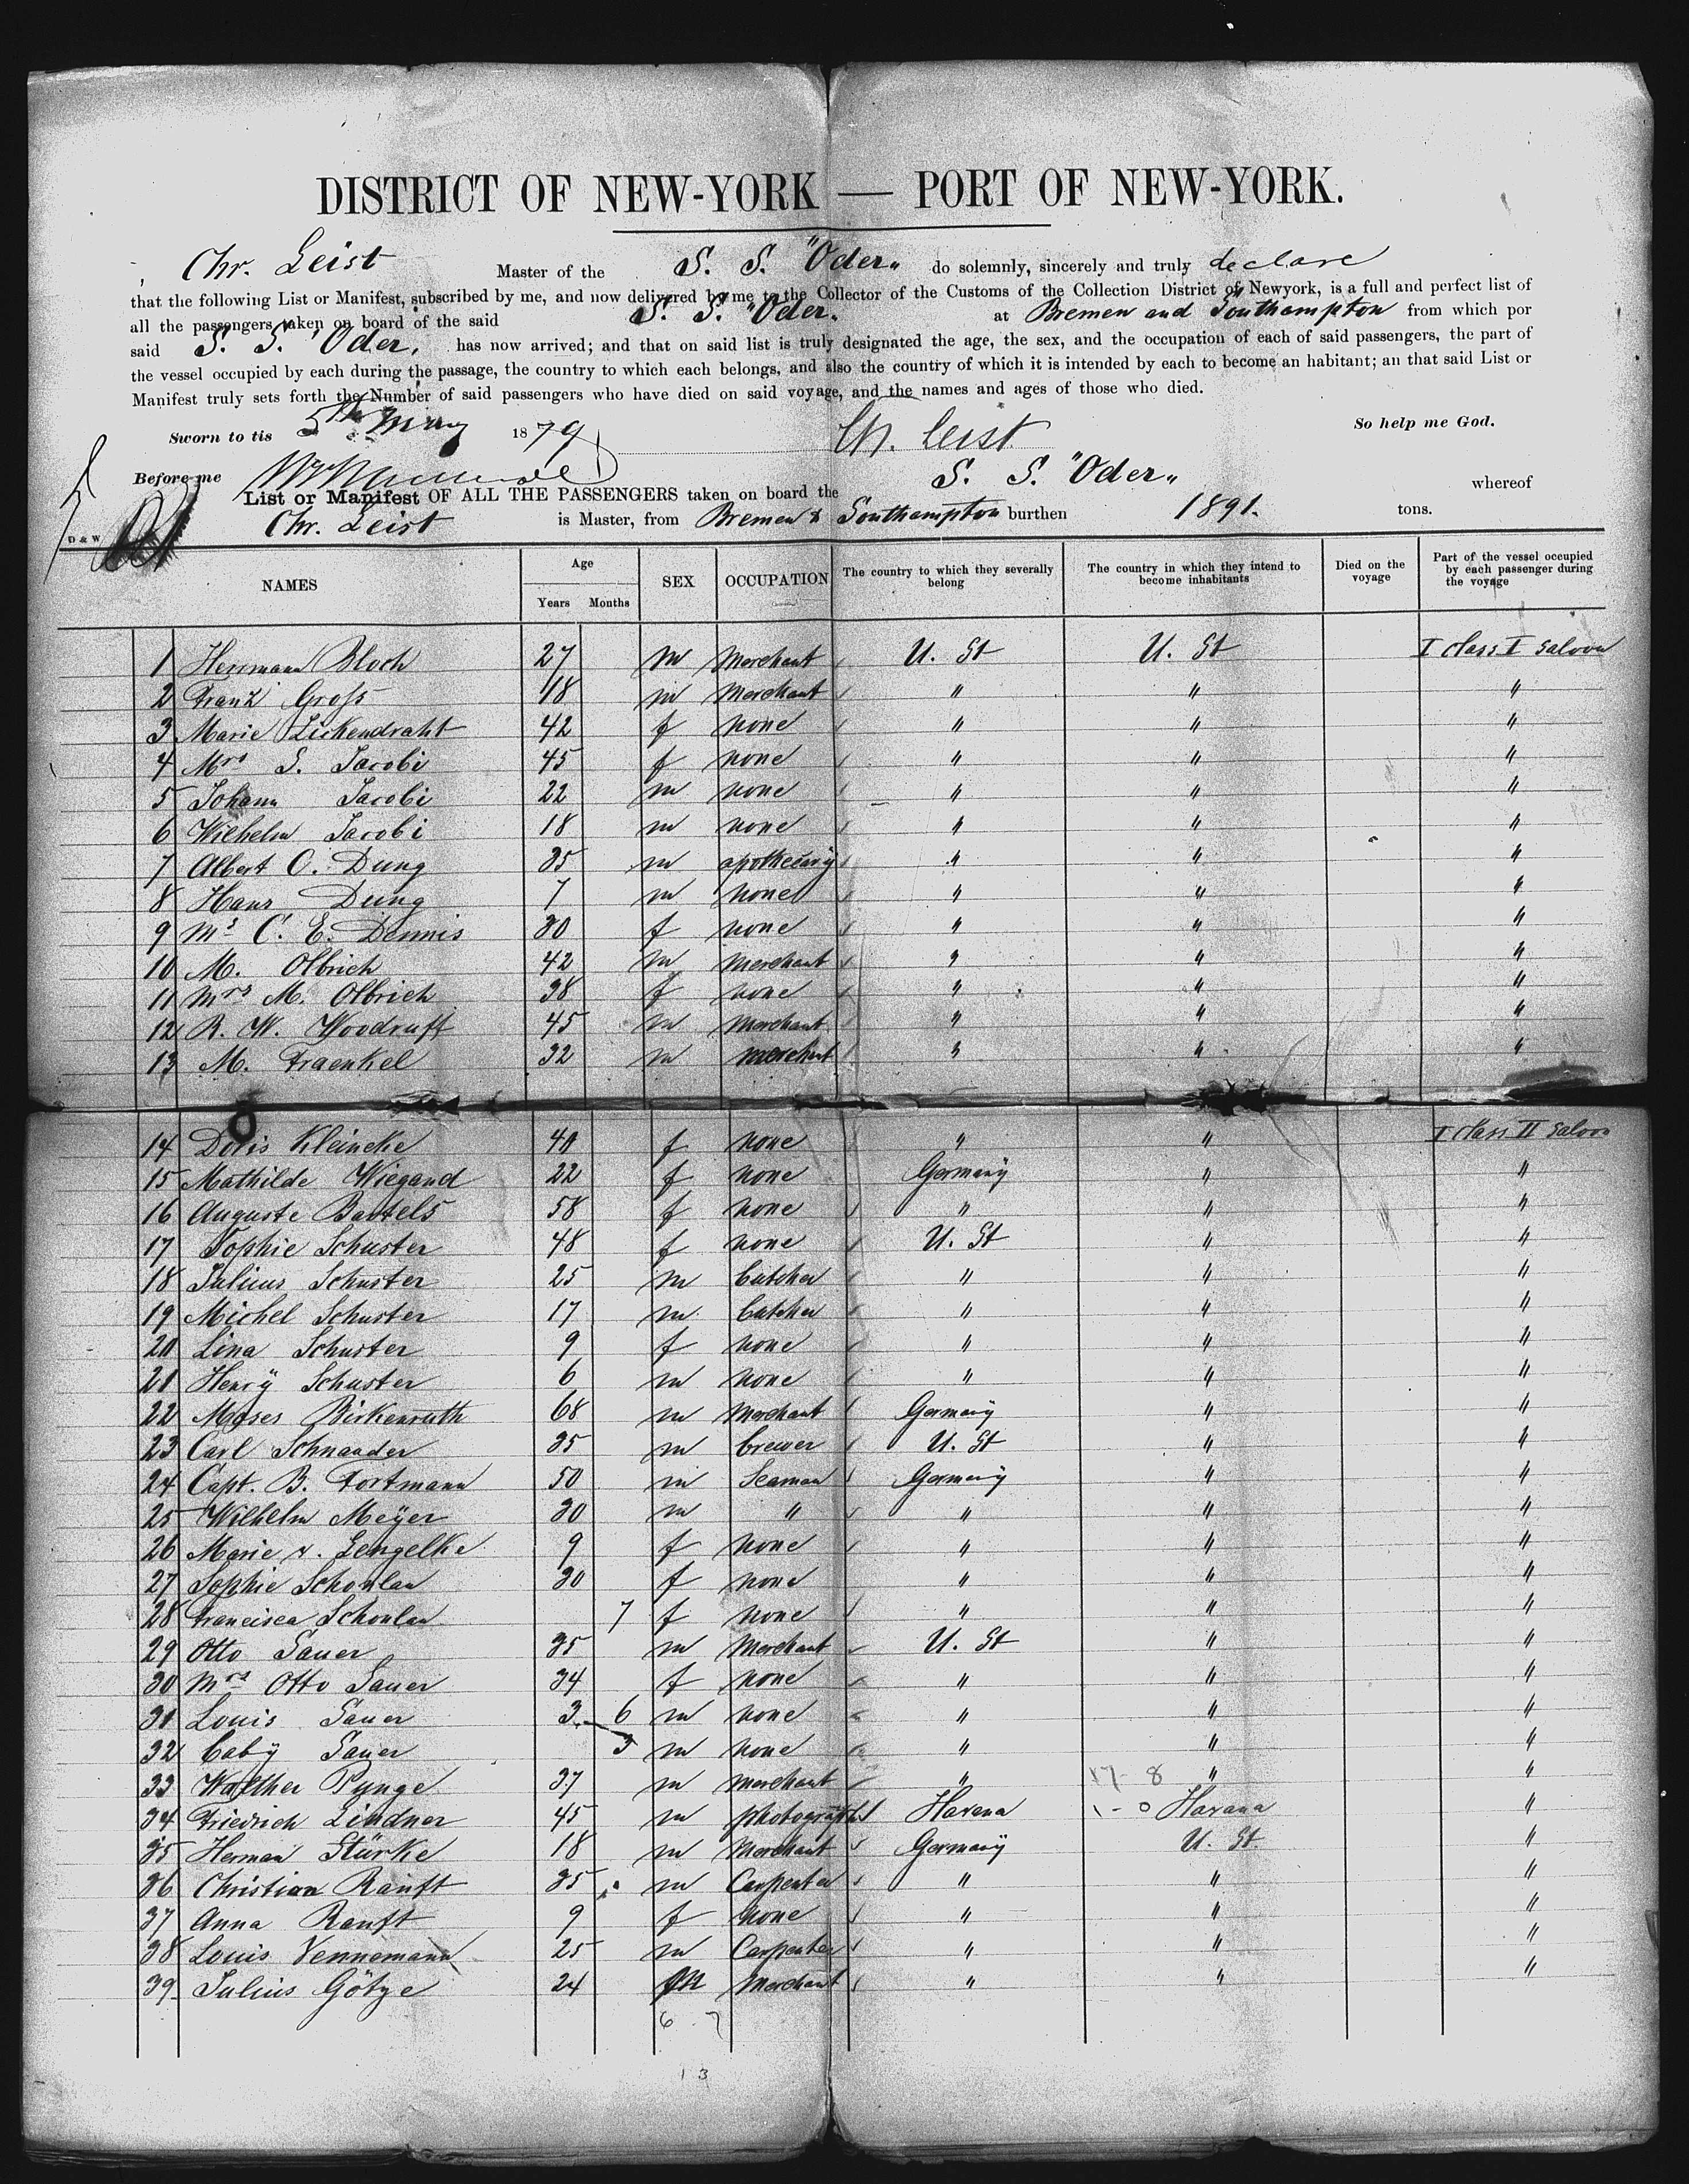 DISTRICT OF NEW-YORK — PORT OF NEW-YORK.
Chr. Leist Master of the S. S. "Oder" do solemnly, sincerely and truly declare
that the following List or Manifest, subscribed by me, and now delivered by me to the Collector of the Customs of the Collection District of Newyork, is a full and perfect list of
all the passengers taken on board of the said S. S. "Oder" at Bremen and Southampton from which por
said S. S. "Oder" has now arrived; and that on said list is truly designated the age, the sex, and the occupation of each of said passengers, the part of
the vessel occupied by each during the passage, the country to which each belongs, and also the country of which it is intended by each to become an habitant; an that said List or
Manifest truly sets forth the Number of said passengers who have died on said voyage, and the names and ages of those who died.
Sworn to tis 5th May 1879 Ch. Leist So help me God.
Before me
List or Manifest OF ALL THE PASSENGERS taken on board the S. S. "Oder" whereof
Chr. Leist is Master, from Bremen & Southampton burthen 1891. tons.
D & W
NAMES Age Years Months SEX OCCUPATION The country to which they severally belong The country in which they intend to become inhabitants Died on the voyage Part of the vessel occupied by each passenger during the voyage
1 Herrmann Bloch 27 m Merchant U. St U. St I class I Saloon
2 Franz Gross 18 m Merchant " " "
3 Marie Lickendraht 42 f none " " "
4 Mrs S. Jacobi 45 f none " " "
5 Johann Jacobi 22 m none " " "
6 Wilhelm Jacobi 18 m none " " "
7 Albert O. Dung 35 m apothecary " " "
8 Hans Dung 7 m none " " "
9 Ms C. E. Dennis 30 f none " " "
10 M. Olbrich 42 m Merchant " " "
11 Mrs M. Olbrich 38 f none " " "
12 R. W. Woodruff 45 m Merchant " " "
13 M. Fraenkel 32 m merchant " " "
14 Doris Kleineke 41 f none " " I class II Saloon
15 Mathilde Wiegand 22 f none Germany " "
16 Auguste Bartels 58 f none " " "
17 Sophie Schuster 48 f none U. St " "
18 Julius Schuster 25 m butcher " " "
19 Michel Schuster 17 m butcher " " "
20 Lina Schuster 9 f none " " "
21 Henry Schuster 6 m none " " "
22 Moses Birkenruth 68 m Merchant Germany " "
23 Carl Schnaader 35 m brewer U. St " "
24 Capt. B. Fortmann 50 m Seaman Germany " "
25 Wilhelm Meyer 30 m " " " "
26 Marie v. Lengelke 9 f none " " "
27 Sophie Schonlau 30 f none " " "
28 Francisca Schonlau 7 f none " " "
29 Otto Sauer 35 m Merchant U. St " "
30 Mrs Otto Sauer 34 f none " " "
31 Louis Sauer 3 6 m none " " "
32 baby Sauer 3 m none " " "
33 Walther Runge 37 m merchant " 17-8 " "
34 Friedrich Lindner 45 m photograph Havana 1-0 Havana "
35 Herman Stürke 18 m Merchant Germany U. St "
36 Christian Ranft 35 m Carpenter " " "
37 Anna Ranft 9 f none " " "
38 Louis Vennemann 25 m Carpenter " " "
39 Julius Götze 24 m Merchant " " "
6 7
13